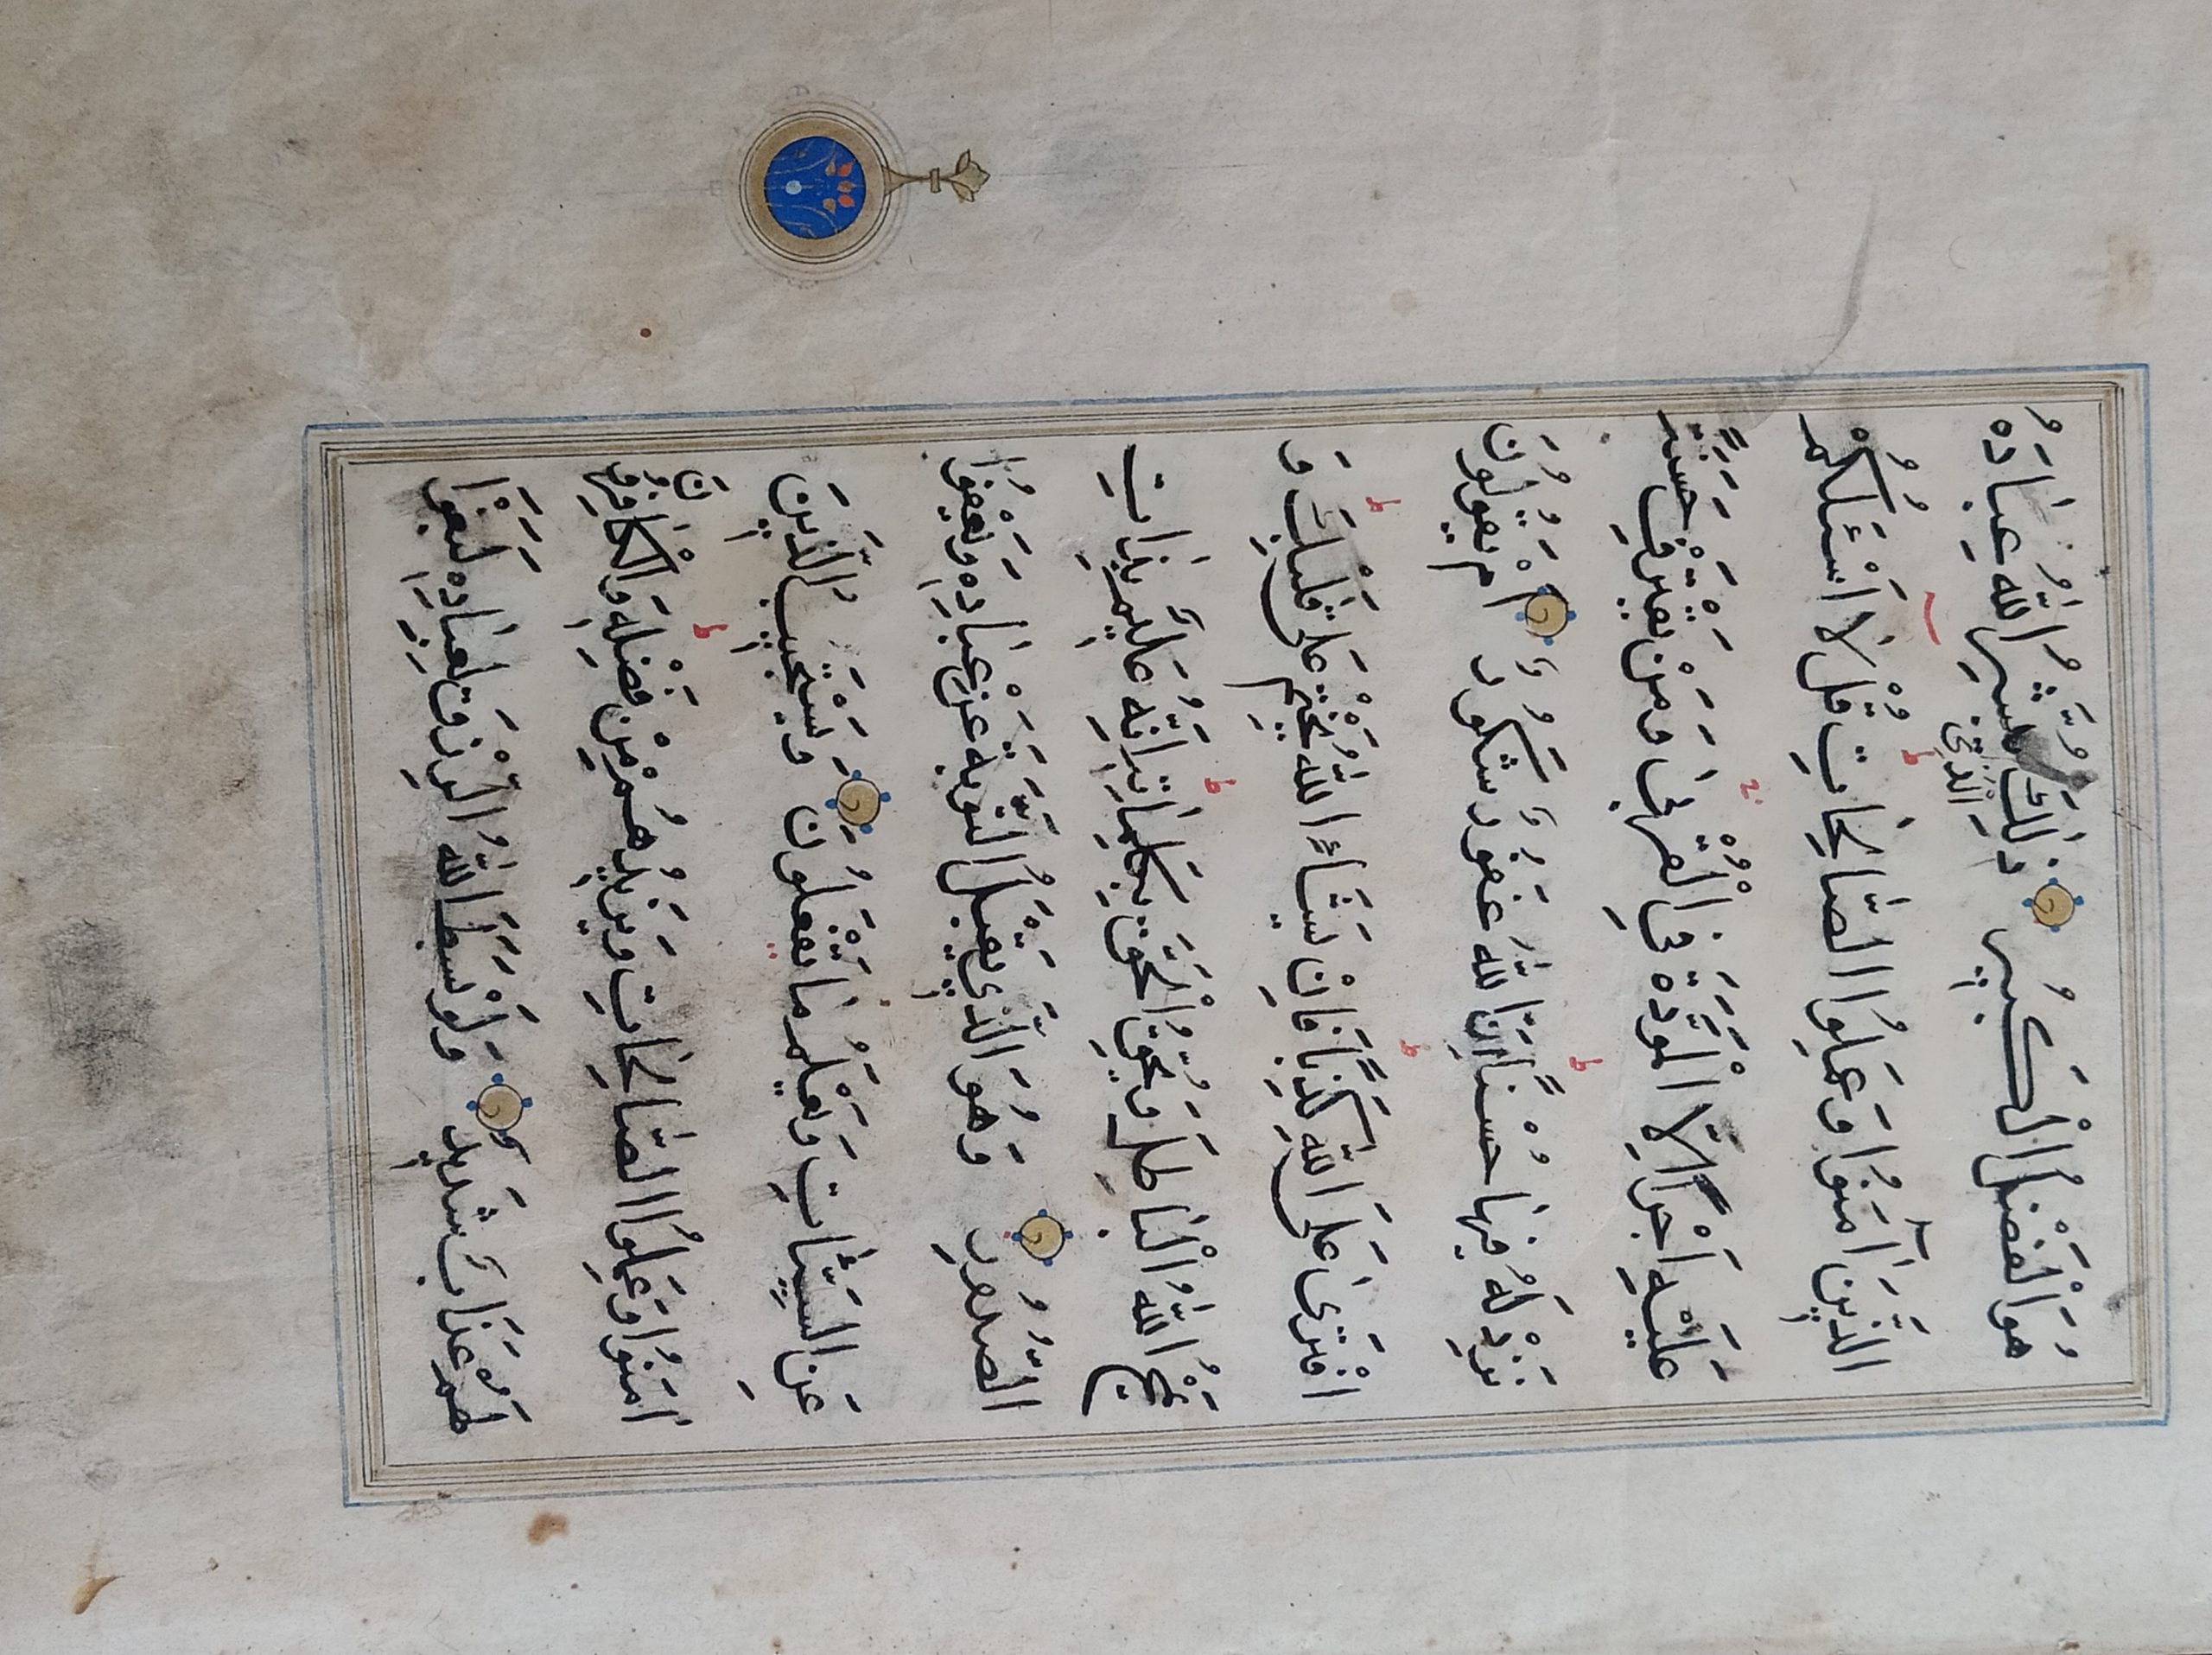 هُوَ الْفَضْلُ الْكَبِيرُ ذَلِكَ الَّذِي يُبَشِّرُ اللَّهُ عِبَادَهُ
الَّذِينَ آمَنُوا وَعَمِلُوا الصَّالِحَاتِ قُلْ لَا اَسْئَلُكُمْ
عَلَيْهِ اَجْرًا اِلَّا الْمَوَدَّةَ فِي الْقُرْبَى وَمَنْ يَقْتَرِفْ حَسَنَةً
نَزِدْ لَهُ فِيهَا حُسْنًا اِنَّ اللَّهَ غَفُورٌ شَكُورٌ اَمْ يَقُولُونَ
افْتَرَى عَلَى اللَّهِ كَذِبًا فَاِنْ يَشَاءِ اللَّهُ يَخْتِمْ عَلَى قَلْبِكَ وَ
يَمْحُ اللَّهُ الْبَاطِلَ وَيُحِقُّ الْحَقَّ بِكَلِمَاتِهِ اِنَّهُ عَلِيمٌ بِذَاتِ
الصُّدُورِ وَهُوَ الَّذِي يَقْبَلُ التَّوْبَةَ عَنْ عِبَادِهِ وَيَعْفُوا
عَنِ السَّيِّئَاتِ وَيَعْلَمُ مَا تَفْعَلُونَ وَيَسْتَجِيبُ الَّذِينَ
اٰمَنُوا وَعَمِلُوا الصَّالِحَاتِ وَيَزِيدُهُمْ مِنْ فَضْلِهِ وَالْكَافِرُونَ
لَهُمْ عَذَابٌ شَدِيدٌ وَلَوْ بَسَطَ اللَّهُ الرِّزْقَ لِعِبَادِهِ لَبَغَوْا